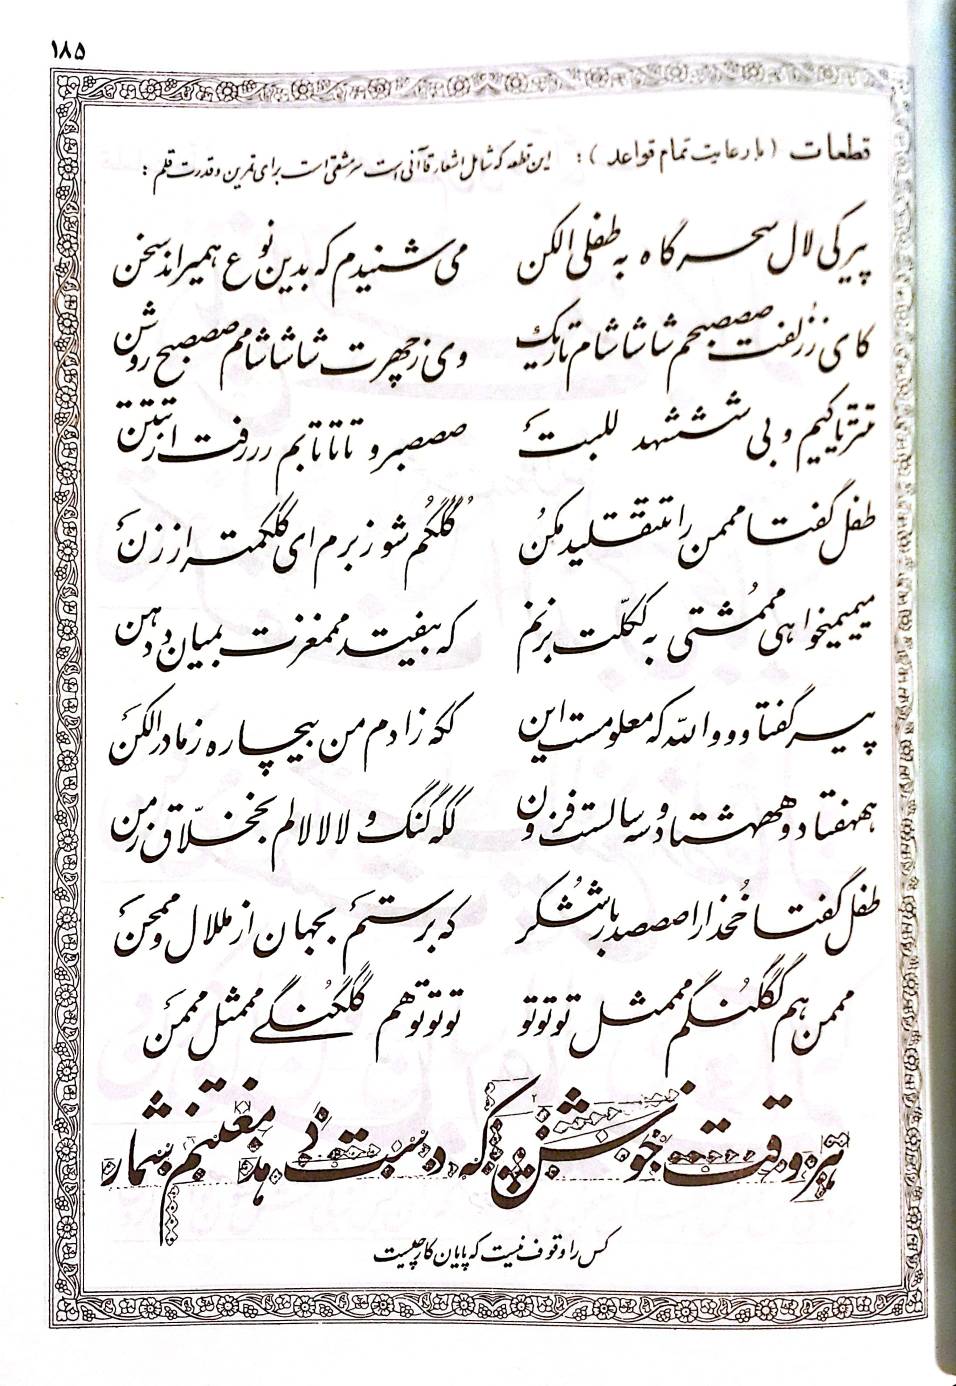 ۱۸۵
قطعات (با رعایت تمام قواعد): این قطعه که شامل اشعار قاآنی است سرمشقی است برای تمرین و قدرت قلم:
پیرکی لال سحرگاه به طفلی الکن می شنیدم که بدین نوع همیراند سخن
کای ززلفت صصصبحم شاشاشام تاریک وی زچهرت شاشاشامم صصصبح روشن
تتتریاکیم و بی شششهد للبت صصصبر و تاتاتابم رررفت از تتتن
طفل گفتا مممن را تتتقلید مکن گگگم شو ز برم ای کککمتر از زن
میمیمیخواهی مممشتی به ککلت بزنم که بیفتد مممغزت بمیان ددهن
پیر گفتا وووالله که معلومست این ککه زادم من بیچاره ز مادر الکن
هههفتاد و ههشتاد و سه سالست فزون گگه گنگ و لالالالم بخخلاق زمن
طفل گفتا خخدا را صصصد بار ششکر که برستم بجهان از مللال و ممحن
مممن هم گگگنگم مممثل توتوتو توتوتو هم گگگنگی مممثل مممن
هر وقت خوش که دست دهد مغتنم شمار
کس را وقوف نیست که پایان کار چیست